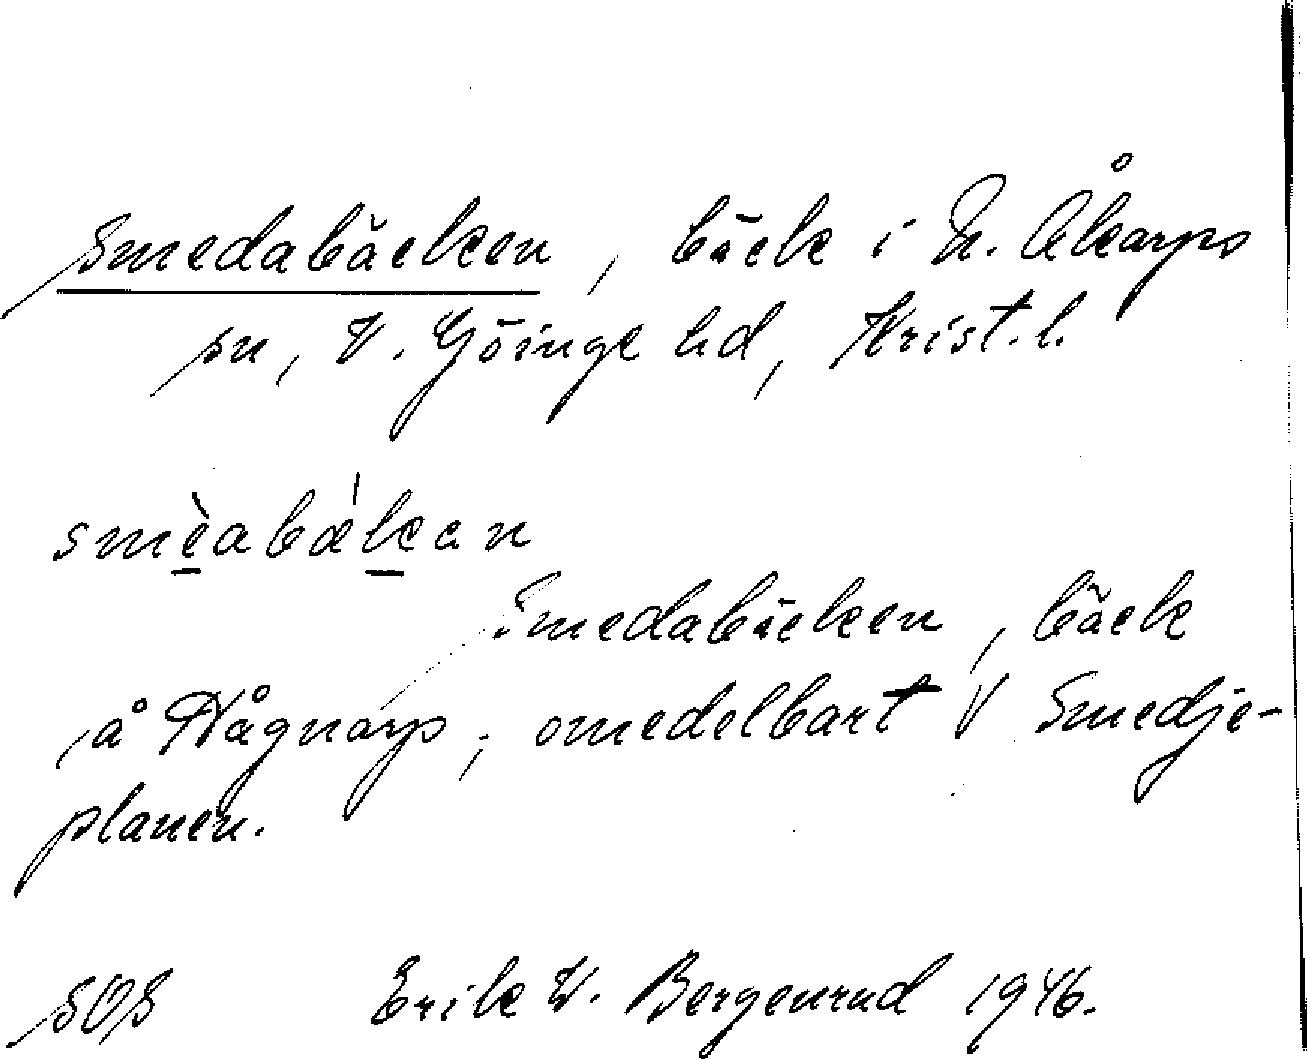 Smedabäcken, bäck i N. Åkarps
sn, V. Göinge hd, Krist. l.
smèabǽkan
Smedabäcken, bäck
å Hågnarp, omedelbart V Smedje-
planen.
SOS Erik W. Bergenrud 1946.